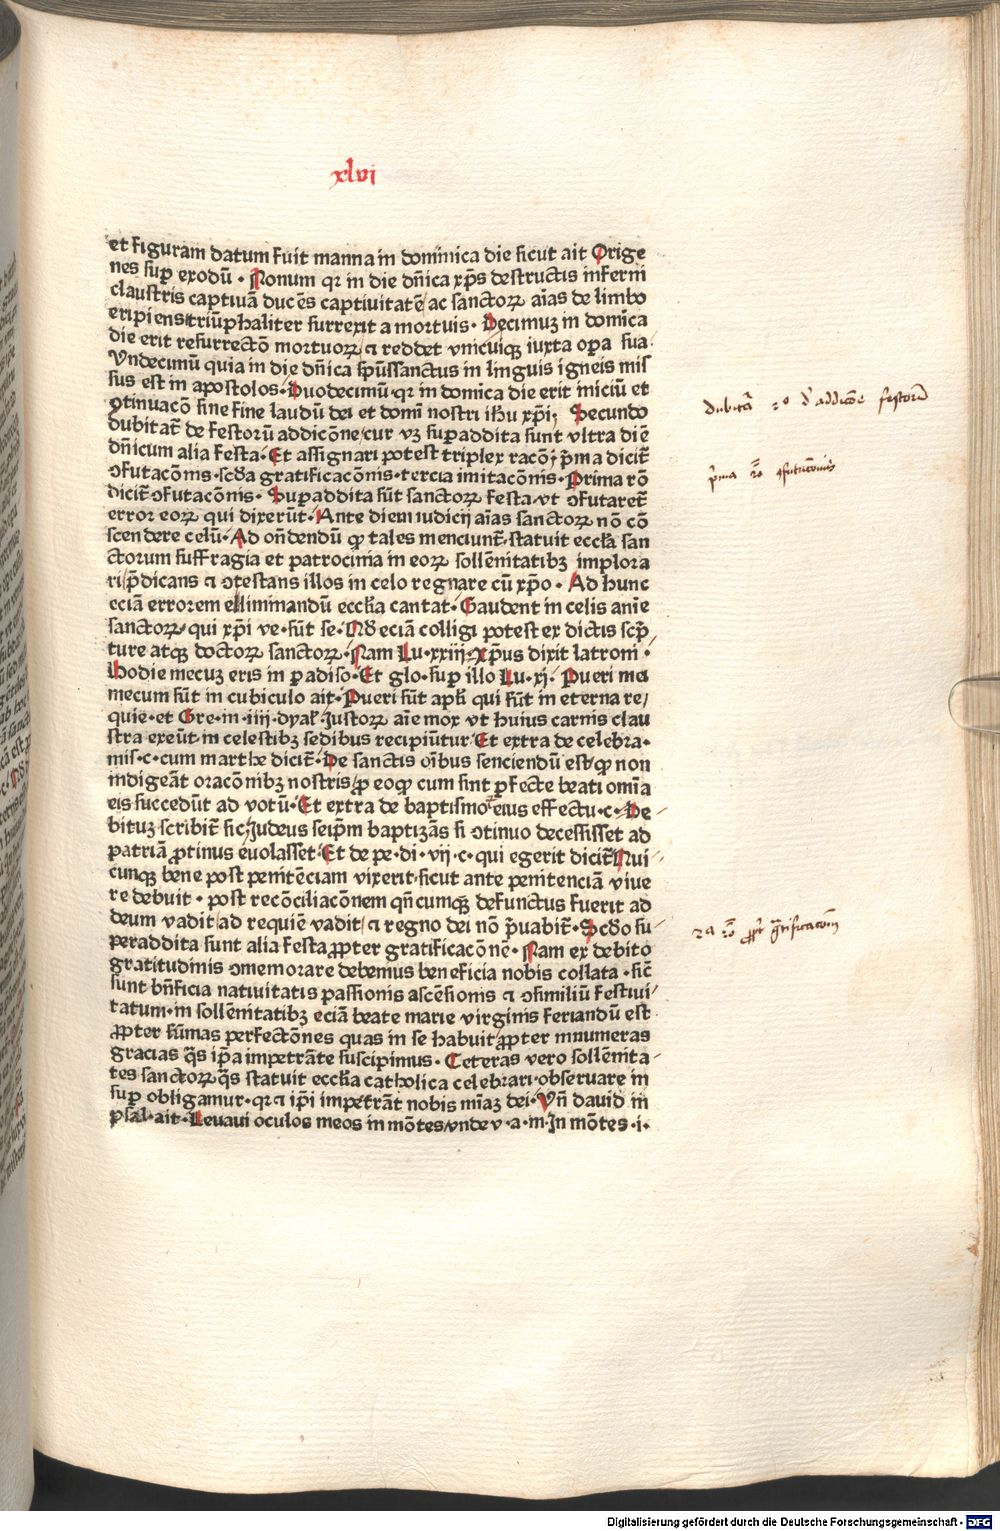 xlvi
et figuram datum fuit manna in dominica die sicut ait Orige
nes sup exodū · Nonum qr in die dn̄ica xp̄s destructis inferni
claustris captiuā ducēs captiuitatē/ ac sanctoꝝ aīas de limbo
eripiens triūphaliter surrexit a mortuis · Decimuz in domīca
die erit resurrectō mortuoꝝ ⁊ reddet vnicuiqꝫ iuxta opa sua ·
Vndecimū quia in die dn̄ica spūssanctus in linguis igneis mis
sus est in apostolos · Duodecimū qr in domīca die erit iniciū et
ꝯtinuacō sine fine laudū dei et domī nostri ihū xp̄i; Secundo
dubitat̄ de festorū addicōne/ cur vꝫ supaddita sunt vltra diē
dn̄icum alia festa · Et assignari potest triplex racō; p̄ma dicit̄
ꝯfutacōnis · scd̄a gratificacōnis · tercia imitacōnis · Prima rō
dicit̄ ꝯfutacōnis · Supaddita sūt sanctoꝝ festa/ vt ꝯfutaret̄
error eoꝝ qui dixerūt · Ante diem iudicij aīas sanctoꝝ nō cō
scendere celū · Ad on̄dendū qꝫ tales menciunt̄ · statuit eccl̄ia san
ctorum suffragia et patrocinia in eoꝝ sollēnitatibꝫ implora
ri/ p̄dicans ⁊ ꝯtestans illos in celo regnare cū xp̄o · Ad hunc
eciā errorem elliminandū eccl̄ia cantat · Gaudent in celis anīe
sanctoꝝ/ qui xp̄i ve · sūt se · Nꝫ eciā colligi potest ex dictis scp̄
ture atqꝫ doctoꝝ sanctoꝝ · Nam Lu · xxiij · Xp̄us dixit latroni ·
Hodie mecuz eris in padiso · Et glo · sup illo Lu · xj · Pueri mei
mecum sūt in cubiculo ait · Pueri sūt apl̄i qui sūt in eterna re/
quie · et Gre · in · iiij · dyal̄ · Justoꝝ aīe mox vt huius carnis clau
stra exeūt in celestibꝫ sedibus recipiūtur · Et extra de celebra ·
mis · c · cum marthe dicit̄ · De sanctis oībus senciendū est/ qꝫ non
indigeāt oracōnibꝫ nostris/ ꝓ eo qꝫ cum sint pfecte beati omīa
eis succedūt ad votū · Et extra de baptismo ⁊ eius effectu · c · De/
bituz scribit̄ sic; Judeus seipm̄ baptizās si ꝯtinuo decessisset ad
patriā ꝓtinus euolasset · Et de pe · di · vij · c · qui egerit dicit̄ Qui/
cunqꝫ bene post penitēciam vixerit · sicut ante penitenciā viue
re debuit · post recōciliacōnem qn̄cumqꝫ defunctus fuerit ad
deum vadit/ ad requiē vadit/ ⁊ regno dei nō p̄uabit̄ · Scd̄o su/
peraddita sunt alia festa ꝓpter gratificacōnē · Nam ex debito
gratitudinis ꝯmemorare debemus beneficia nobis collata · sic̄
sunt bn̄ficia natiuitatis passionis ascēsionis ⁊ ꝯsimiliū festiui/
tatum · in sollēnitatibꝫ eciā beate marie virginis feriandū est
ꝓpter sūmas perfectōnes quas in se habuit ꝓpter innumeras
gracias q̄s ip̄a impetrāte suscipimus · Ceteras vero sollēnita/
tes sanctoꝝ q̄s statuit eccl̄ia catholica celebrari · obseruare in
sup obligamur · qr ⁊ ip̄i impetrāt nobis mīaz dei · Vn̄ dauid in
psal · ait · Leuaui oculos meos in mōtes/ vnde v · a · m · In mōtes · i ·
dubitat̄ 2º d' addicōne festorū
p̄ma rō ꝯfutacōnis
2a rō ꝓpt̄ gratificacōnem
Digitalisierung gefördert durch die Deutsche Forschungsgemeinschaft - DFG